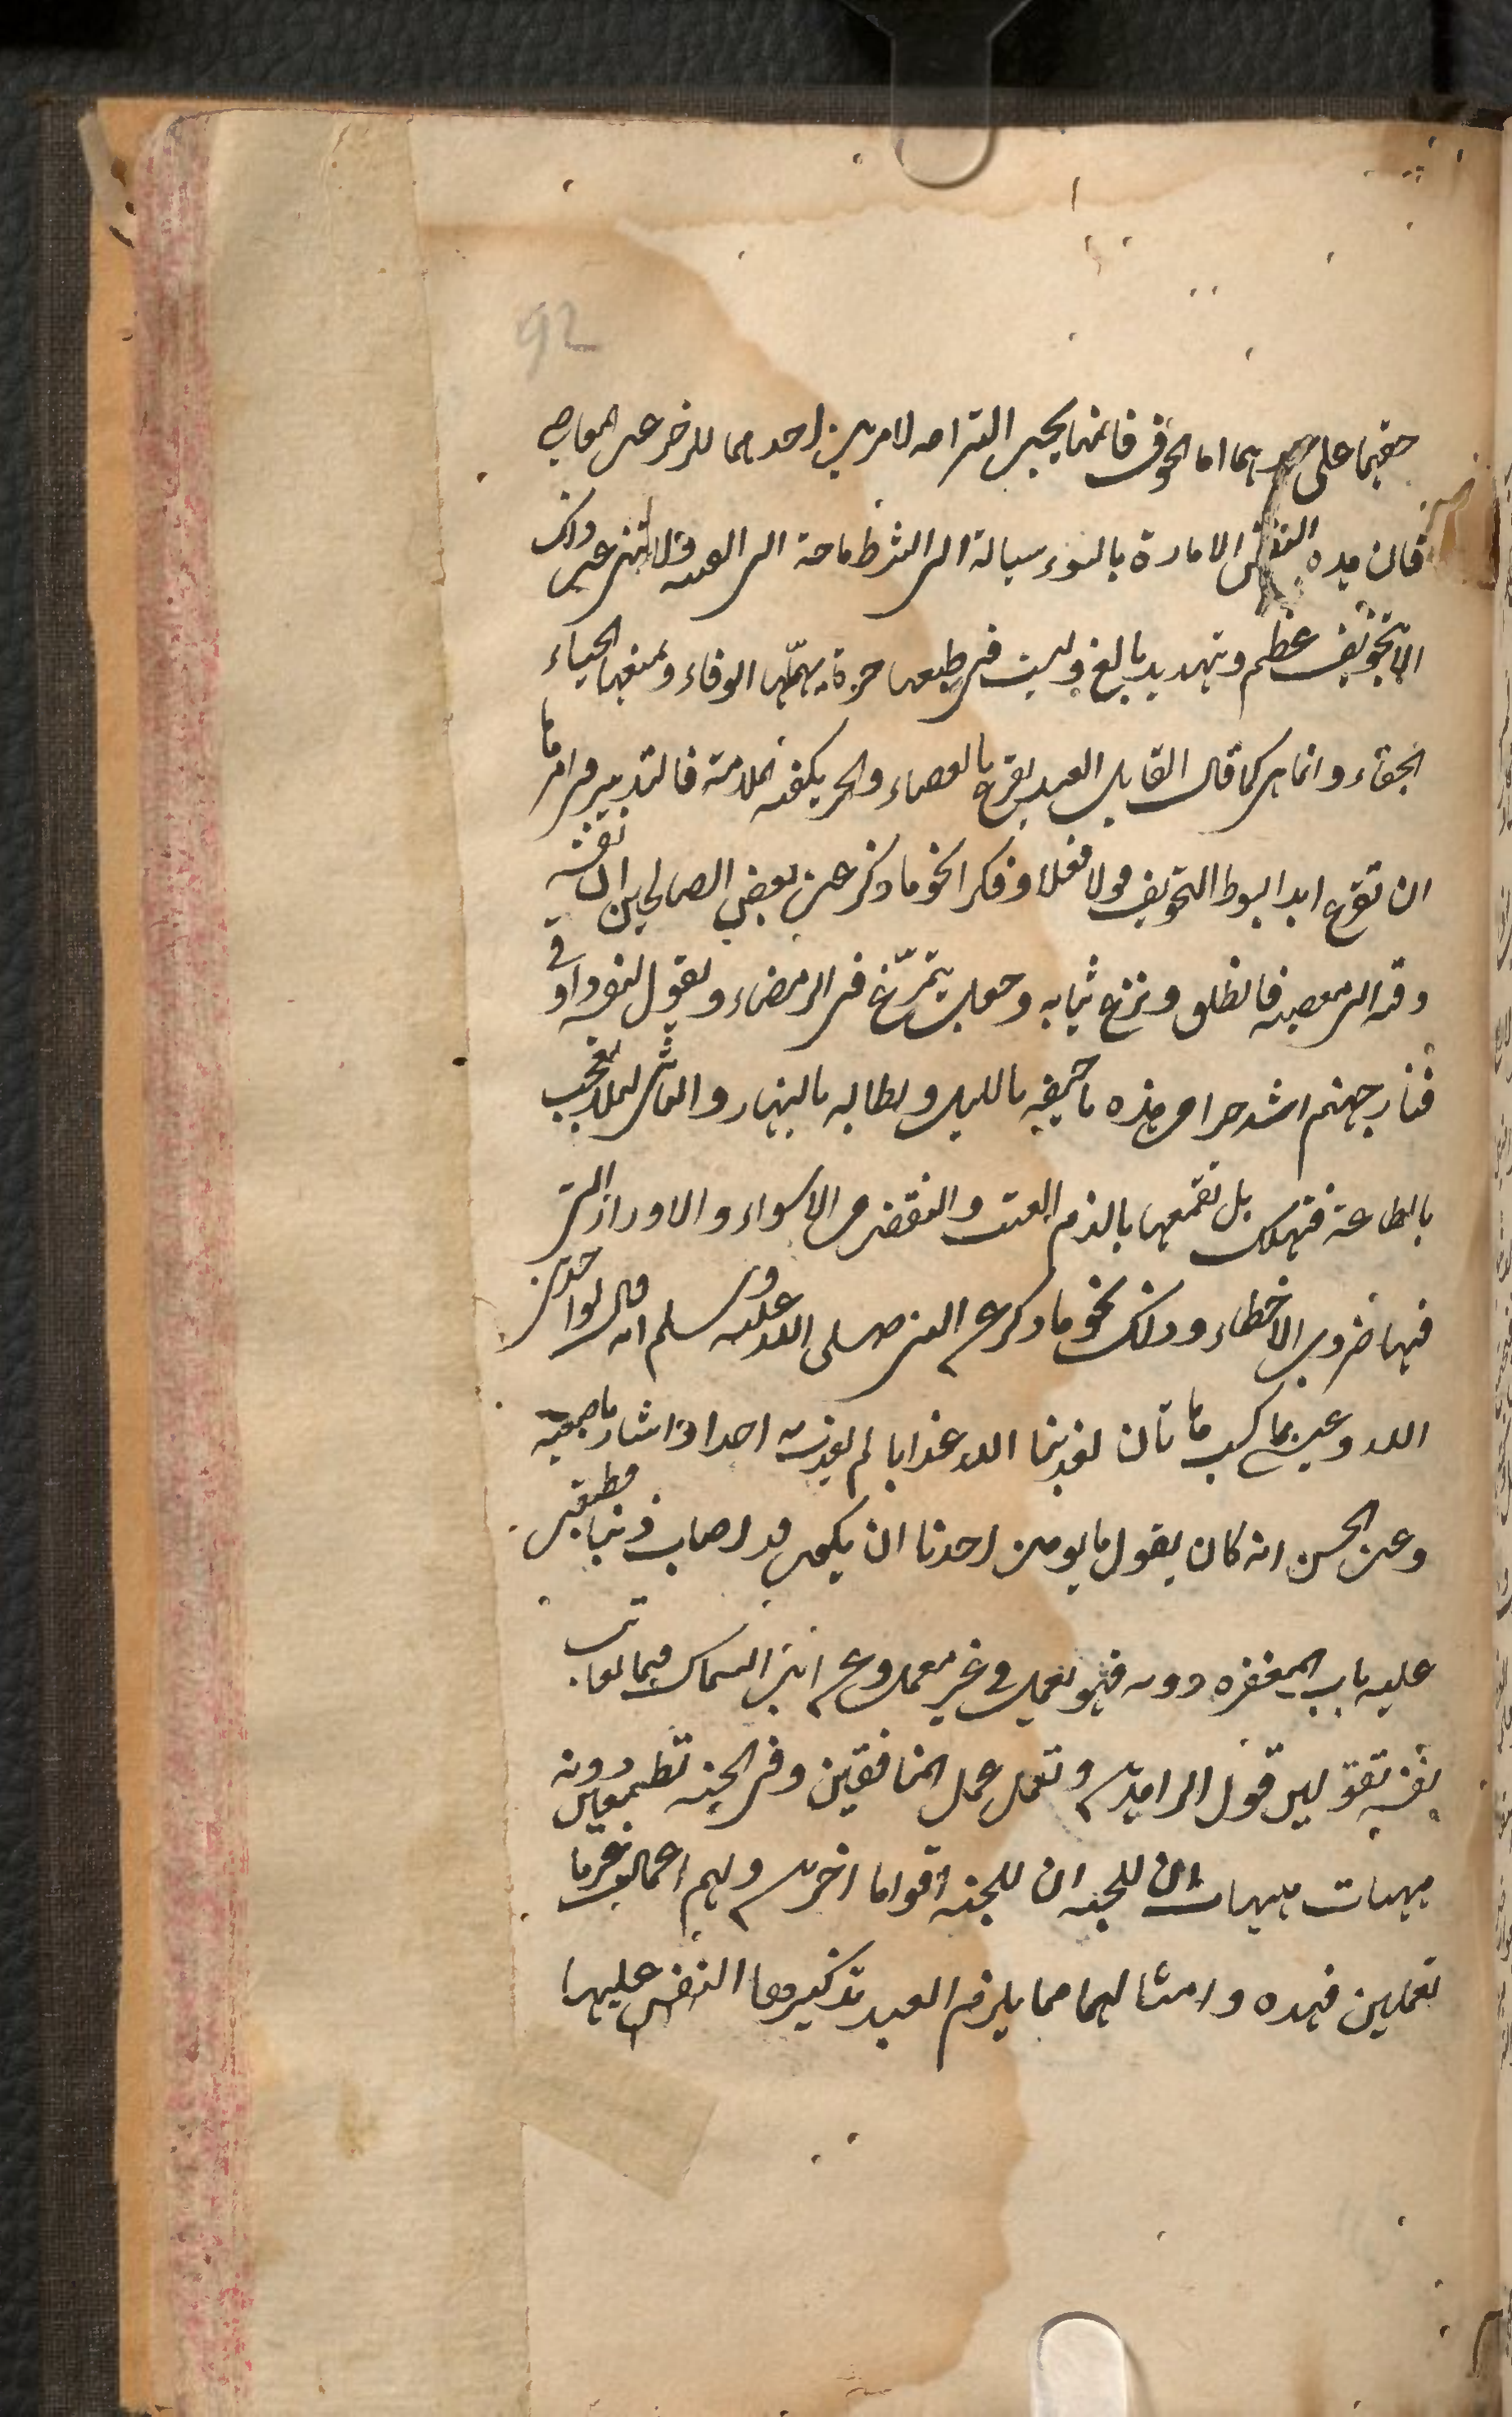 92
حقهما على حدهما اما الخوف فانما يجب التزامه لامرين احدهما للزجر عن المعاصي
فان هذه النفس الامارة بالسوء ميالة الى الشر طماحة الى الفتنة ولا تنتهي عن ذلك
الا بتخويف عظيم وتهديد بالغ وليست في طبعها حرة يهمها الوفاء ويمنعها الحياء
الجفاء وانما هي كما قال القايل العبد يقرع بالعصاء والحر يكفيه الملامة فالتدبير في امرها
ان تقرع ابدا بسوط التخويف قولا وفعلا وفكرا نحو ما ذكر عن بعض الصالحين ان نفسه
دعته الى معصية فانطلق ونزع ثيابه وجعل يتمرغ في الرمضاء ويقول لنفسه ذوقي
فنار جهنم اشد حرا من هذه جيفة بالليل وبطالة بالنهار والثاني لئلا تعجب
بالطاعة فتهلك بل تقمعها بالذم والعيب والنقص من الاسواء والاوزار التي
فيها ضروب الاخطار وذلك نحو ما ذكر عن النبي صلى الله عليه وسلم انه قال لو اخذني
الله وعيسى بما كسبت هاتان لعذبنا الله عذابا لم يعذبه احدا واشار باصبعيه
وعن الحسن انه كان يقول ما يومن احدنا ان يكون قد اصاب ذنبا فطبق
عليه باب المغفرة دونه فهو يعمل في غير معمل وعن ابن السماك فيما يعاتب
نفسه تقولين قول الزاهدين وتعمل عمل المنافقين وفي الجنة تطمعين دونه
هيهات هيهات ان للجنة ان للجنة اقواما اخرين ولهم اعمال غير ما
تعملين فهذه وامثالهما مما يلزم العبد تذكيرها النفس عليها